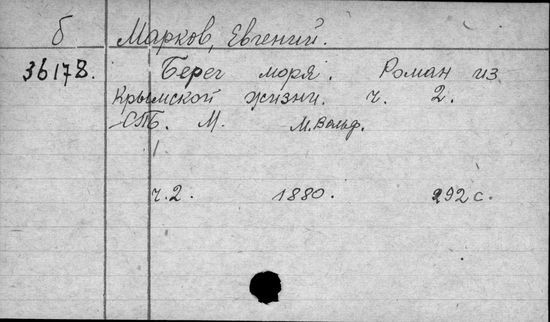 б Марков, Евгений.
36178. Берег моря. Роман из
Крымской жизни. ч. 2.
СПБ. М. М. Вольф.
ч. 2. 1880. 292 с.